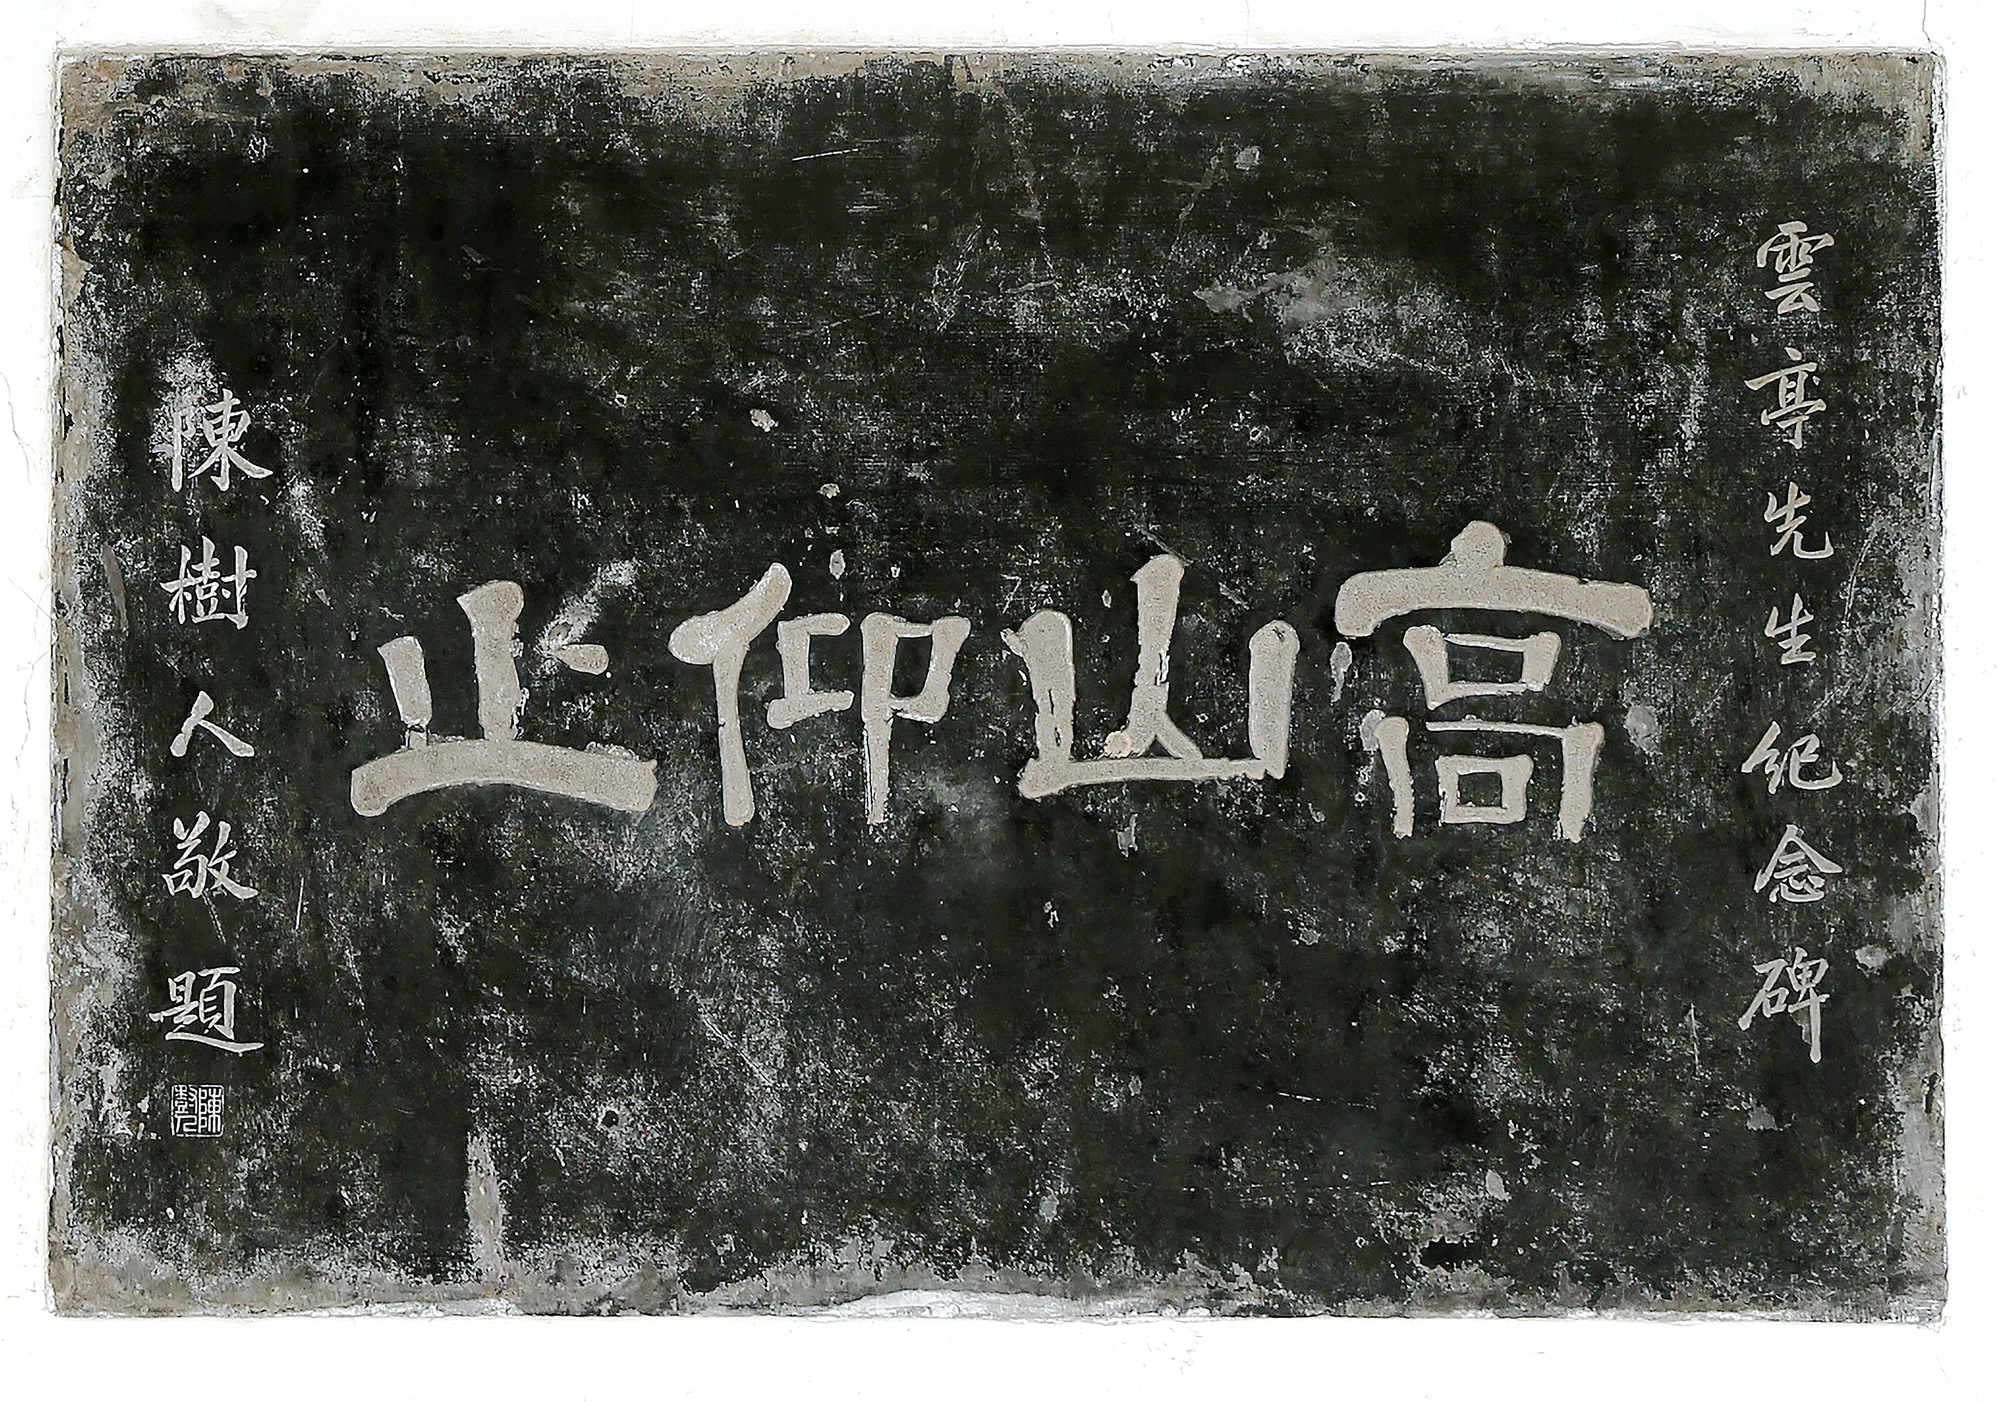 雲亭先生纪念碑
高山仰止
陳樹人敬題